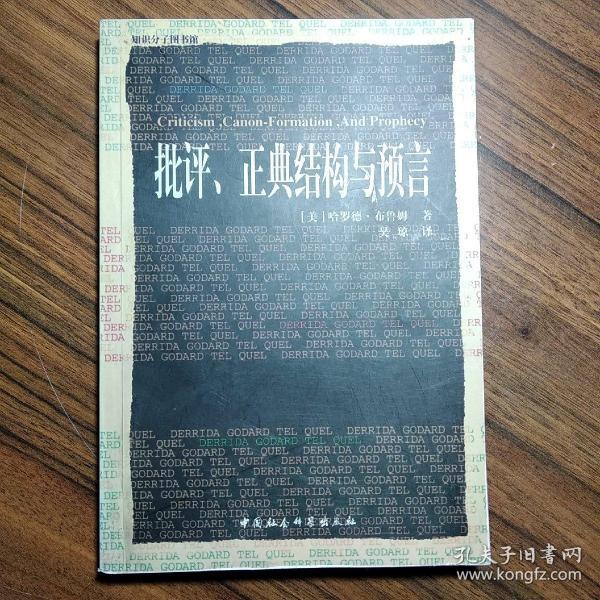 知识分子图书馆
Criticism ,Canon-Formation ,And Prophecy
批评、正典结构与预言
[美]哈罗德·布鲁姆 著
吴琼 译
DERRIDA GODARD TEL QUEL
中国社会科学出版社
孔夫子旧书网
www.kongfz.com